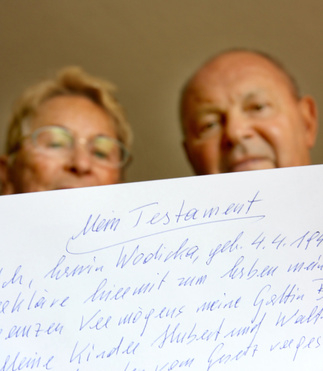 Mein Testament
Ich, Wodicka, geb. 4.4.194
erkläre hiermit zum Erben mein
ganzen Vermögens meine Gattin
Meine Kinder Hubert und Walt
vom Gesetz vorges